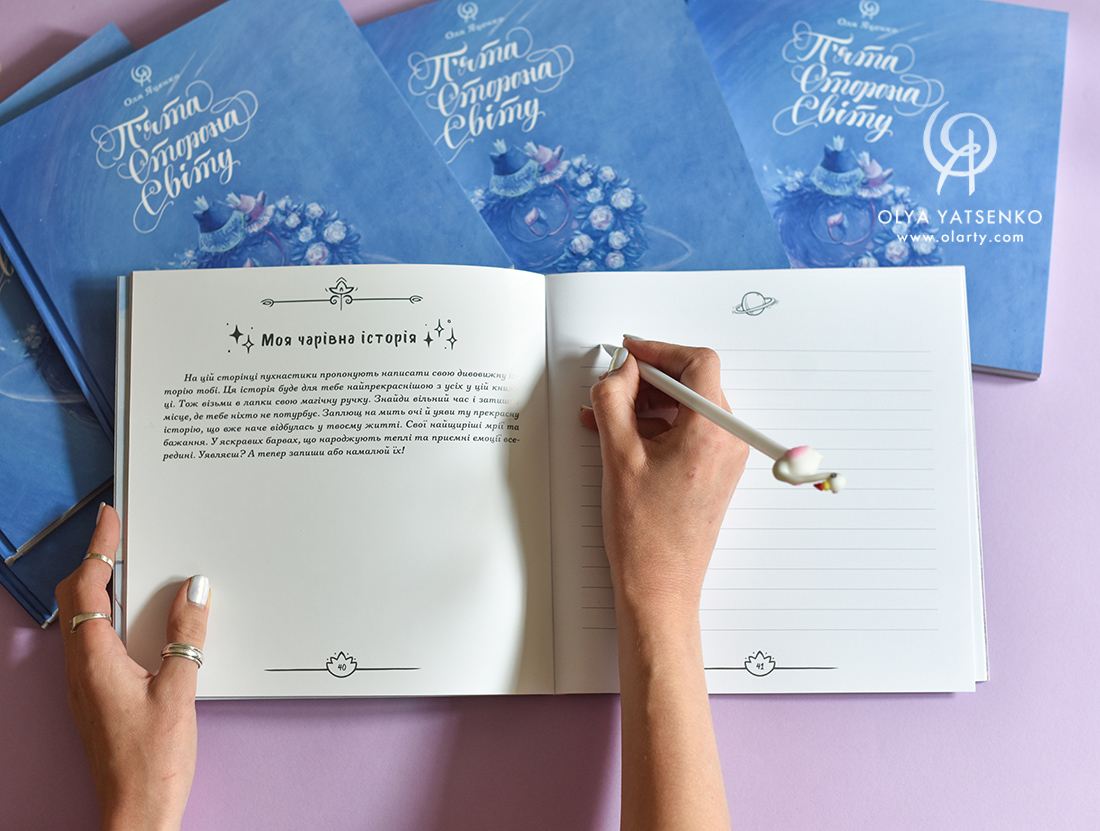 Оля Яценко
П'ята
Сторона
Світу
Оля Яценко
П'ята
Сторона
Світу
Оля Яценко
П'ята
Сторона
Світу
OLYA YATSENKO
www.olarty.com
Моя чарівна історія
На цій сторінці пухнастики пропонують написати свою дивовижну
торію тобі. Ця історія буде для тебе найпрекраснішою з усіх у цій кни-
ці. Тож візьми в лапки свою магічну ручку. Знайди вільний час і затишне
місце, де тебе ніхто не потурбує. Заплющ на мить очі й уяви ту прекрасну
історію, що вже наче відбулась у твоєму житті. Свої найщиріші мрії та
бажання. У яскравих барвах, що народжують теплі та приємні емоції все-
редині. Уявляєш? А тепер запиши або намалюй їх!
40
41